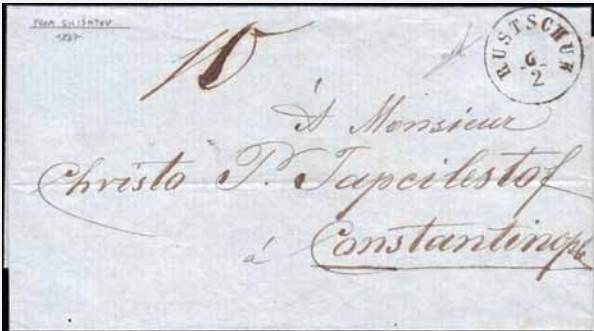 FROM SHISHTOV
1857
10
RUSTSCHUK
6/2
À Monsieur
Christo P. Tapcilestof
à Constantinople